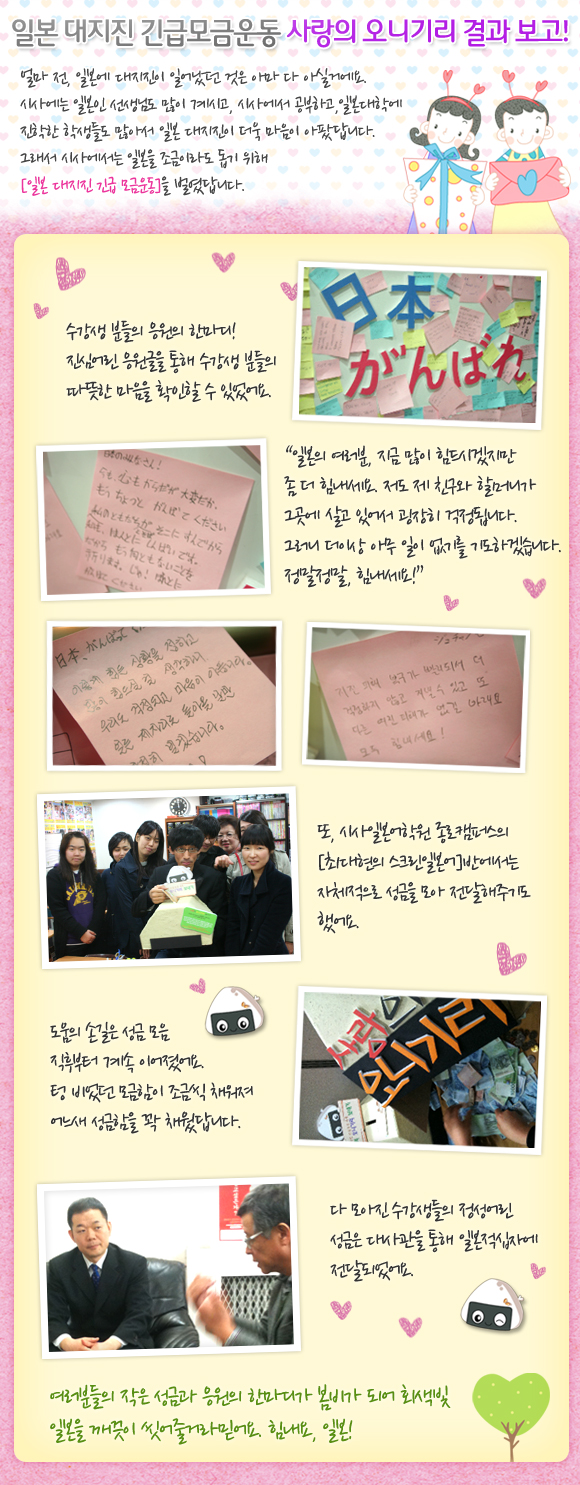 일본 대지진 긴급모금운동 사랑의 오니기리 결과 보고!
얼마 전, 일본에 대지진이 일어났던 것은 아마 다 아실거에요.
시사에는 일본인 선생님도 많이 계시고, 시사에서 공부하고, 일본대학에
진학한 학생들도 많아서 일본 대지진이 더욱 마음이 아팠답니다.
그래서 시사에서는 일본을 조금이라도 돕기 위해
[일본 대지진 긴급 모금운동]을 벌였답니다.
수강생 분들의 응원의 한마디!
진심어린 응원글을 통해 수강생 분들의
따뜻한 마음을 확인할 수 있었어요.
日本
がんばれ
日本の皆さん!
もう ちょっと がんばて ください
"일본의 여러분, 지금 많이 힘드시겠지만
좀 더 힘내세요. 저도 제 친구와 할머니가
그곳에 살고 있어서 굉장히 걱정됩니다.
그러니 더이상 아무 일이 없기를 기도하겠습니다.
정말정말, 힘내세요!"
日本、がんばって
우리도 걱정되고 마음이 아픕니다.
지진 피해 복구가 빨리되서 더
걱정하지 않고 지낼 수 있고 또
다른 여진 피해가 없길 바래요
모두 힘내세요!
또, 시사일본어학원 종로캠퍼스의
[최대현의 스크린일본어]반에서는
자체적으로 성금을 모아 전달해주기도
했어요.
도움의 손길은 성금 모음
직후부터 계속 이어졌어요.
텅 비었던 모금함이 조금씩 채워져
어느새 성금함을 꽉 채웠답니다.
사랑의
오니기리
다 모아진 수강생들의 정성어린
성금은 대사관을 통해 일본적십자에
전달되었어요.
여러분들의 작은 성금과 응원의 한마디가 봄비가 되어 회색빛
일본을 깨끗이 씻어줄거라믿어요. 힘내요, 일본!